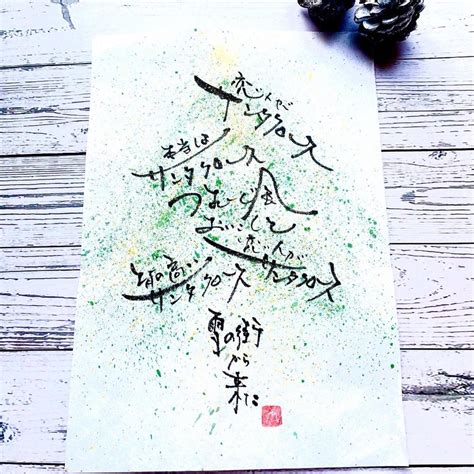 恋人が
サンタクロース
本当は
サンタクロース
つむじ風
追いこして
恋人が
サンタクロース
背の高い
サンタクロース
雪の街
から
来た